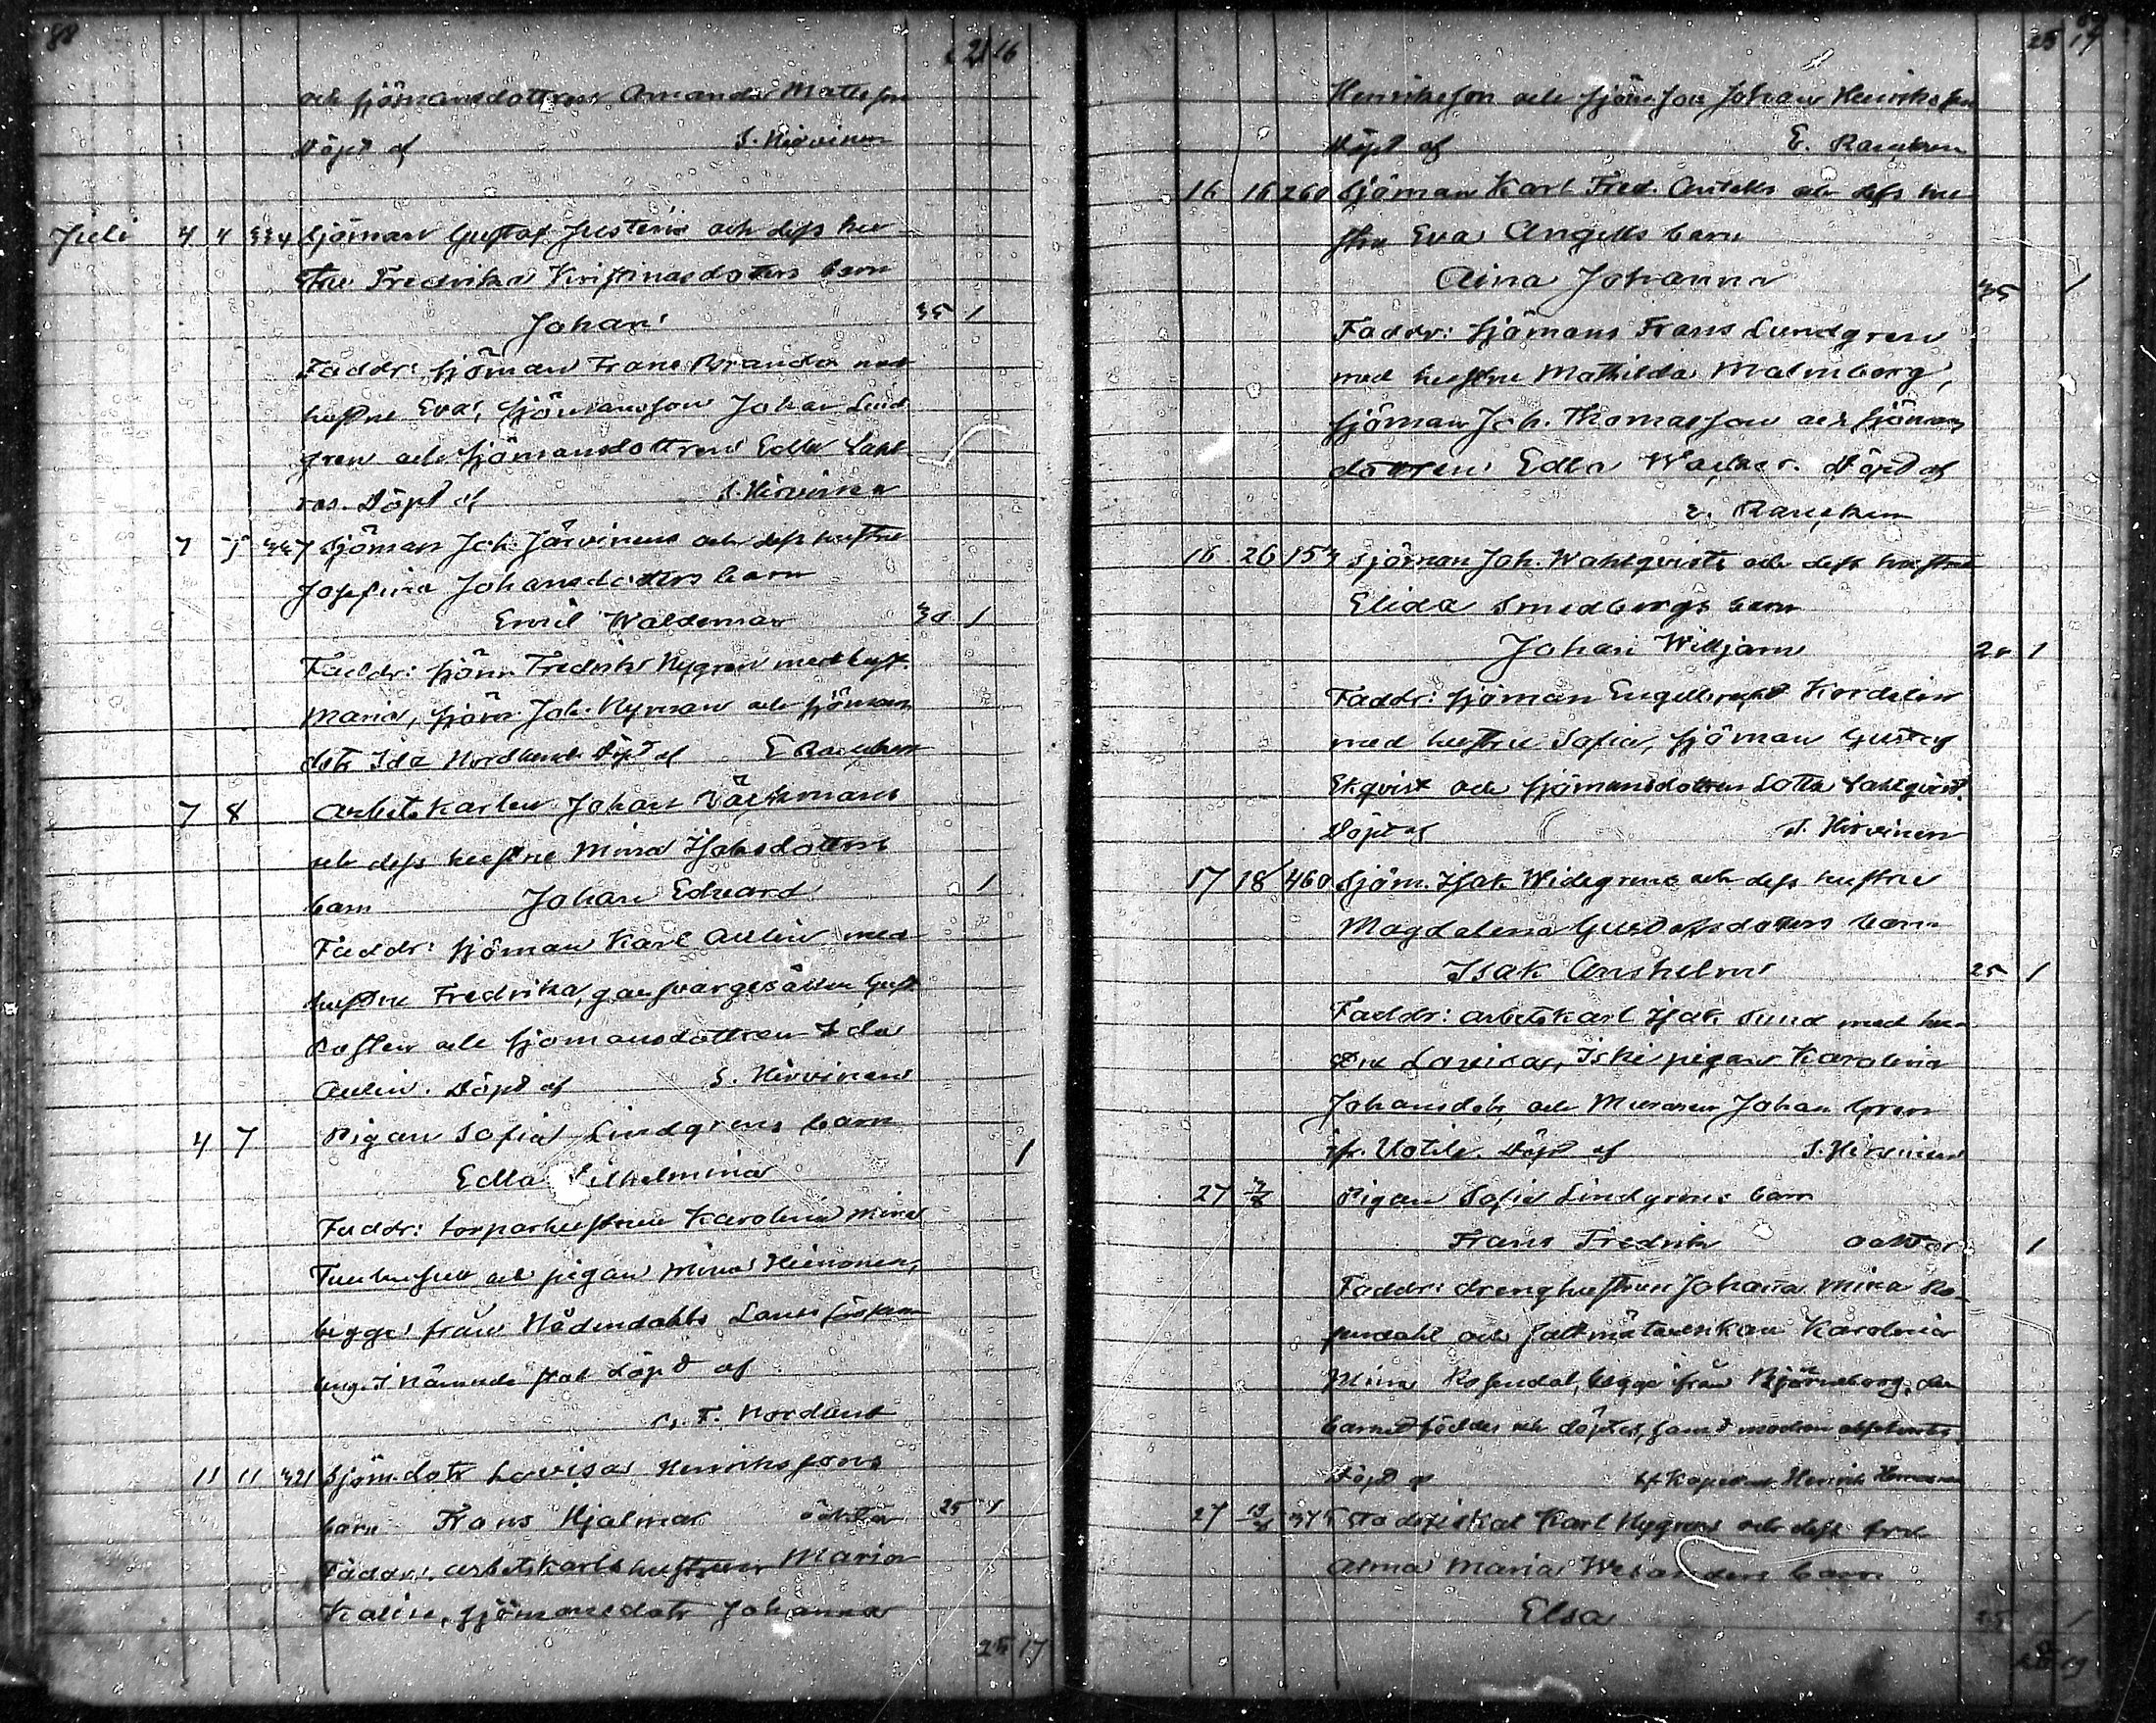 88
21 16
och sjömansdottren Amanda Mattsson
Döpt af S. Hirvinen
Juli 4 4 334 Sjöman Gustaf Justens och dess hu-
stru Fredrika Kristinasdotters barn
Johan 35 1
Faddr: sjöman Frans Brander med
hustru Eva, sjömansson Johan Lind-
gren och sjömansdottren Edla
Döpt af S. Hirvinen
7 7 337 Sjöman Joh. Järvinens och dess hustru
Josefina Johansdotters barn
Emil Waldemar 30 1
Faddr: sjöm. Fredrik Nygren med hust.
Maria, sjöm. Joh. Nyman och sjömans
dotr Ida Nordlund. Döpt af E. Rancken
7 8 Arbetskarlen Johan Väckmans
och dess hustru Mina Isaksdotters
barn Johan Edvard 1
Faddr: sjöman Karl Aulin med
hustru Fredrika, garfvargesällen Gust
och sjömansdottren Ida
Aulin. Döpt af S. Hirvinen
4 7 Pigan Sofia Lindgrens barn
Edla Vilhelmina 1
Faddr: torparhustrun Karolina Mina
och pigan Mina Heinonen,
bägge från Nådendahls Landsförsam-
ling. I nämnde stad döpt af
F. Nordlund
11 11 321 Sjöm. dotr Lovisa Henrikssons
barn Frans Hjalmar oäkta 25 1
Faddr: arbetskarlshustrun Maria
Kalin, sjömansdotr Johanna
25 17
25 17
Henriksson och sjöm. son Johan Henriksson
Döpt af E. Rancken
16 16 260 Sjöman Karl Fred. och dess hu-
stru Eva Angells barn
Aina Johanna 35 1
Faddr: sjöman Frans Lundgren
med hustru Mathilda Malmberg,
sjöman Joh. Thomasson och sjömans
dottren Edla Wacker. Döpt af
E. Rancken
16 26 153 Sjöman Joh. Wahlqvists och dess hustru
Elida Smedbergs barn
Johan Willijam 20 1
Faddr: sjöman Engelbrekt Kordelin
med hustru Sofia, sjöman Gustaf
Ekqvist och sjömansdottren Lotta Wahlqvist.
Döpt af S. Hirvinen
17 18 460 Sjöm. Isak Widegrens och dess hustru
Magdalena Gustafsdotters barn
Isak Anshelm 25 1
Faddr: arbetskarl Isak Sund med hu-
stru Lovisa, pigan Karolina
Johansdotr, och Muraren Johan
Uotila. Döpt af S. Hirvinen
27 7/8 Pigan Sofia Lindgrens barn
Frans Fredrik oäkta 1
Faddr: drenghustrun Johanna Mina Ro-
sendahl och Karolina
Mina Rosendal, bägge från Björneborg, der
barnet föddes och döptes, samt modren absolverats.
Döpt af Kapellan Henrik
27 19/8 Stadsfiskal Karl Nygrens och dess fru
Alma Maria Welanders barn
Elsa 35 1
19